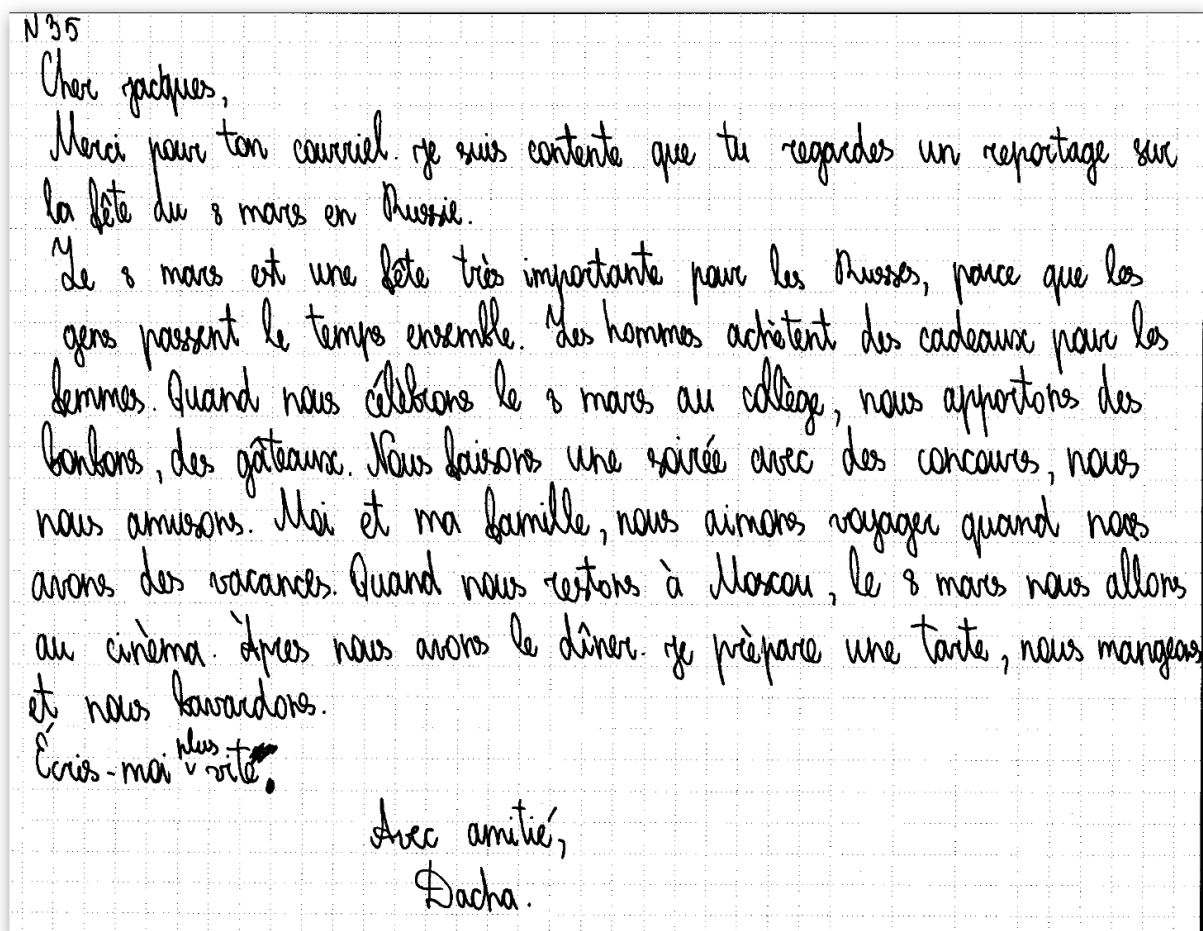 N 35
Cher jacques,
Merci pour ton courriel. je suis contente que tu regardes un reportage sur
la fête du 8 mars en Russie.
Le 8 mars est une fête très importante pour les Russes, parce que les
gens passent le temps ensemble. Les hommes achètent des cadeaux pour les
femmes. Quand nous célèbrons le 8 mars au collège, nous apportons des
bonbons, des gâteaux. Nous faisons une soirée avec des concours, nous
nous amusons. Moi et ma famille, nous aimons voyager quand nous
avons des vacances. Quand nous restons à Moscou, le 8 mars nous allons
au cinèma. Àpres nous avons le dîner. je prèpare une tarte, nous mangeons
et nous bavardons.
Écris-moi plus vite.
Avec amitié,
Dacha.